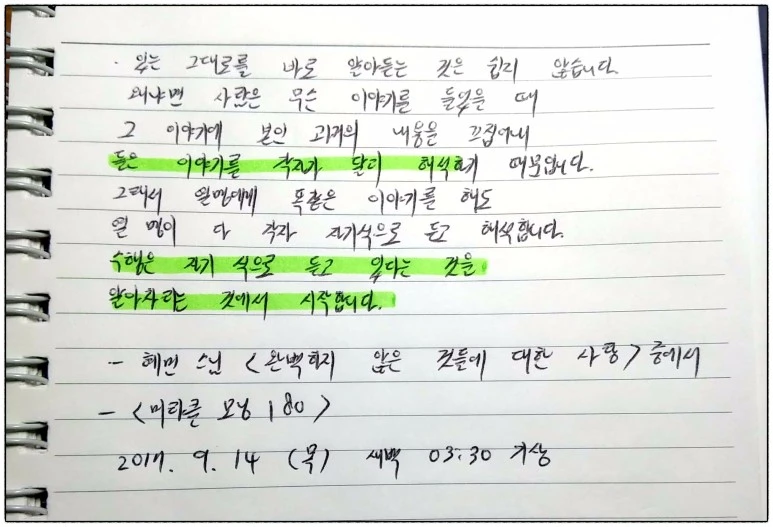 · 있는 그대로를 바로 알아듣는 것은 쉽지 않습니다.
왜냐면 사람은 무슨 이야기를 들었을 때
그 이야기에 본인 과거의 내용을 끄집어내
들은 이야기를 각자가 달리 해석하기 때문입니다.
그래서 열명에게 똑같은 이야기를 해도
열 명이 다 각자 자기식으로 듣고 해석합니다.
수행은 자기 식으로 듣고 있다는 것을
알아차리는 것에서 시작합니다.
- 혜민 스님 <완벽하지 않은 것들에 대한 사랑> 중에서
- <미라클 모닝 180>
2017. 9. 14 (목) 새벽 03:30 기상